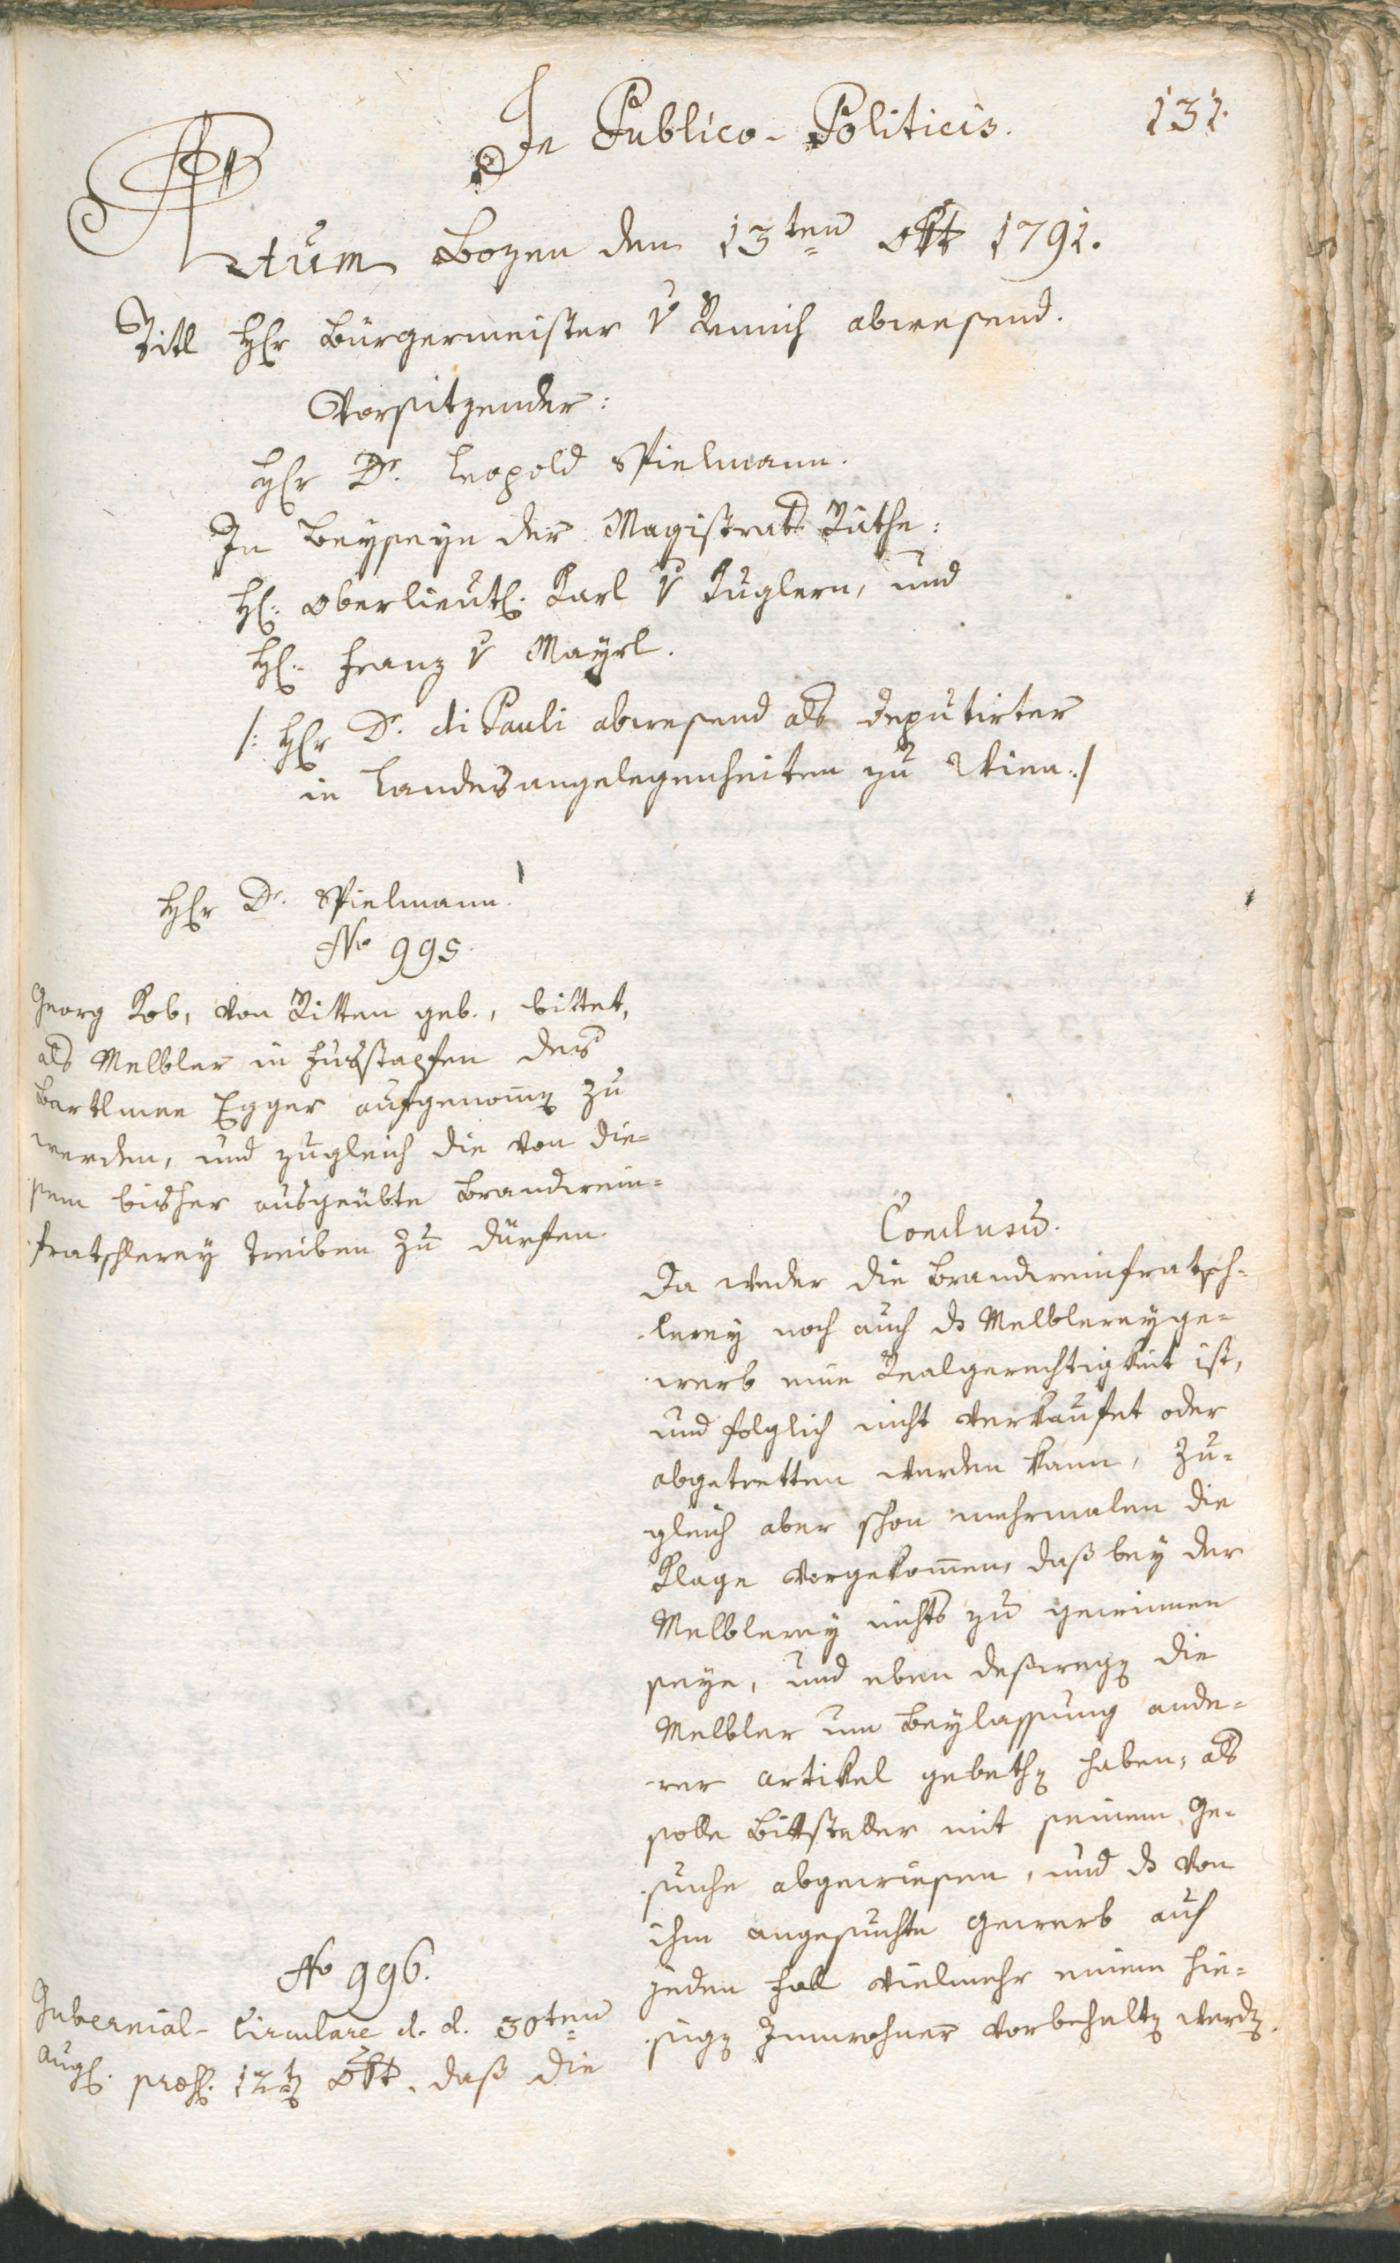 In Publico-Politicis.
131.
Actum Bozen den 13ten Okt 1791.
Titl Herr Bürgermeister v Remich abwesend.
Vorsitzender:
Herr Dr. Leopold Spielmann.
In Beyseyn der Magistrats Räthe:
H: Oberlieut: Karl v Kuglern, und
H: Franz v Mayrl.
/: Herr Dr. di Pauli abwesend als deputirter
in Landesangelegenheiten zu Wien :/
Herr Dr. Spielmann.
No 995.
Georg Kob, von Ritten geb., bittet,
als Melbler in Fusstapfen des
Bartlmee Egger aufgenom̅en zu
werden, und zugleich die von die=
sem bisher ausgeübte Brandwein=
fratschlerey treiben zu dürfen.
Conclusum.
Da weder die Brandweinfratsch=
lerey noch auch das Melblereyge=
werb eine Realgerechtigkeit ist,
und folglich nicht verkaufet oder
abgetretten werden kann, zu=
gleich aber schon mehrmalen die
Klage vorgekom̅en, daß bey der
Melblerey nichts zu gewinnen
seye, und eben deßwegen die
Melbler um Beylassung ande=
rer Artikel gebethen haben, als
solle Bittsteller mit seinem Ge=
suche abgewiesen, und das von
ihm angesuchte Gewerb auf
jeden Fall vielmehr einem hie=
sigen Innwohner vorbehalten werden.
No 996.
Gubernial-Circulare d. d. 30ten
Aug: præs: 12ten Okt. daß die